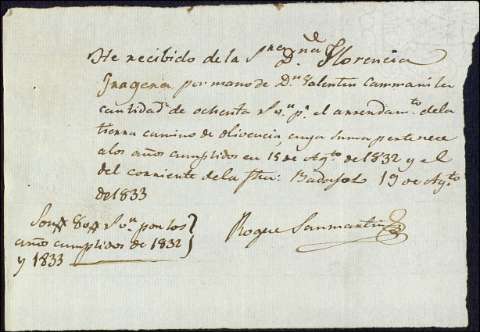 He recibido de la Sra. Da. Florencia
Yragena por mano de Dn. Valentin Cammani la
cantidad de ochenta Rs. vn. pr. el arrendamto. de la
tierra camino de olivencia, cuya suma pertenece
a los años cumplidos en 15 de Agto. de 1832 y el
del corriente de la fha. Badajoz 19 de Agto.
de 1833
Son 80 Rs. vn. por los
año cumplidos de 1832
y 1833
Roque Sanmartin